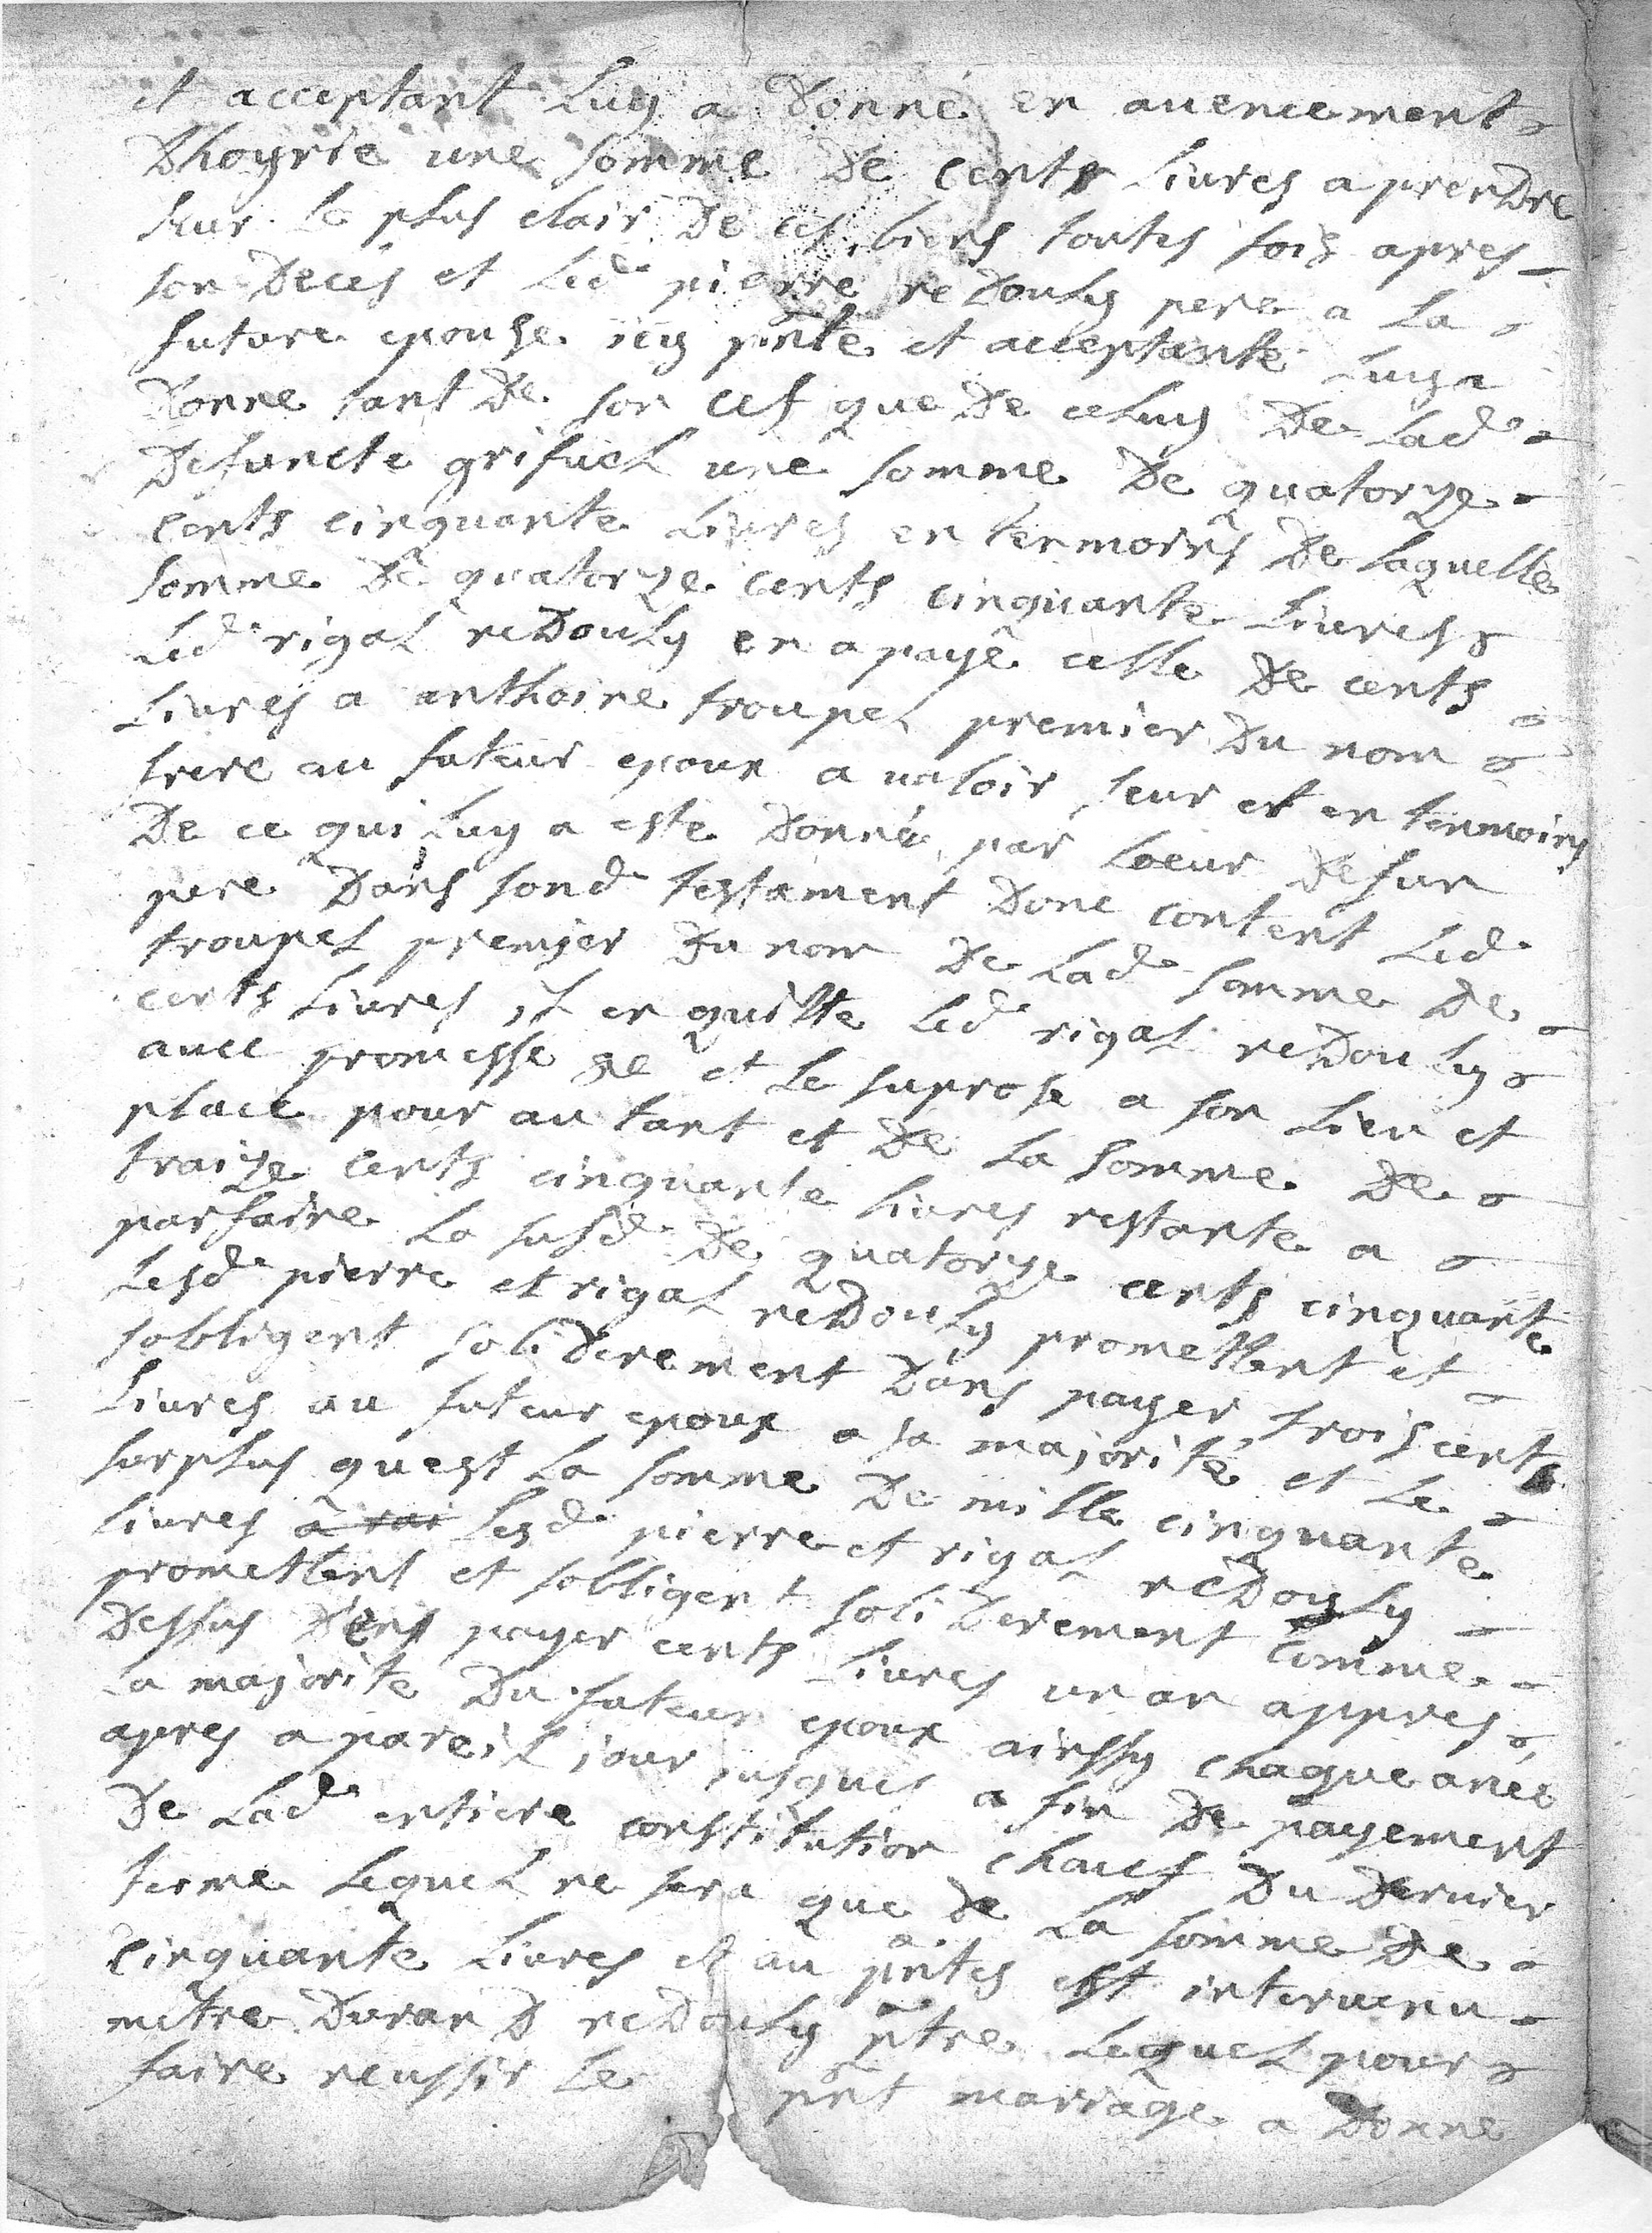 et acceptant luy a donné en auencement
dhoyrie une somme de cents liures a prendre
sur le plus clair de ces biens toutes fois apres
son deces et led pierre redouly pere a la
future epouse icy pnte et acceptante luy a
donne tant de son cef que de celuy de lad
defuncte grifuel une somme de quatorze
cents cinquante liures en tenmoins de laquelle
somme de quatorze cents cinquante liures
led rigal redouly en a payé celle de cents
liures a anthoine troupel premier du nom
frere au futeur epoux a ualoir seur et en tenmoins
de ce qui luy a este donné par leur defun
pere dans sond testament donc content led
troupel premier du nom de lad somme de
cents liures il en quitte led rigal redouly
auec promesse de et le suprose a son lieu et
place pour au tant et de la somme de
traize cents cinquante liures restante a
parfaire la susd de quatorze cents cinquante
lesd pierre et rigal redouly promettent et
sobligent soliderement dans payer trois cents
liures au futeur epoux a sa majorité et le
surplus quest la somme de mille cinquante
liures lesd pierre et rigal redouly
promettent et sobligent soliderement comme
dessus dens payer cents liures un an appres
la majorite du futeur epoux ainssy chaque aneé
apres a pareil jour jusques a fin de payement
de lad entiere constitution chaucf du dernier
terme lequel ne sera que de la somme de
cinquante liures et au pntes est interuenu
metre durand redouly ptre lequel pour
faire reussir le pnt mariage a donne